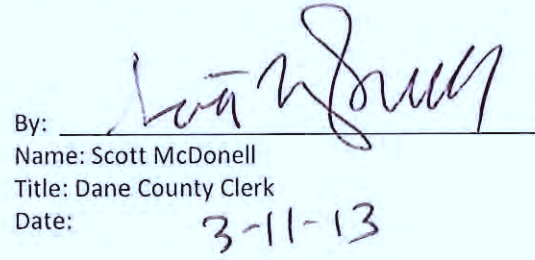 By: Scott McDonell
Name: Scott McDonell
Title: Dane County Clerk
Date: 3-11-13